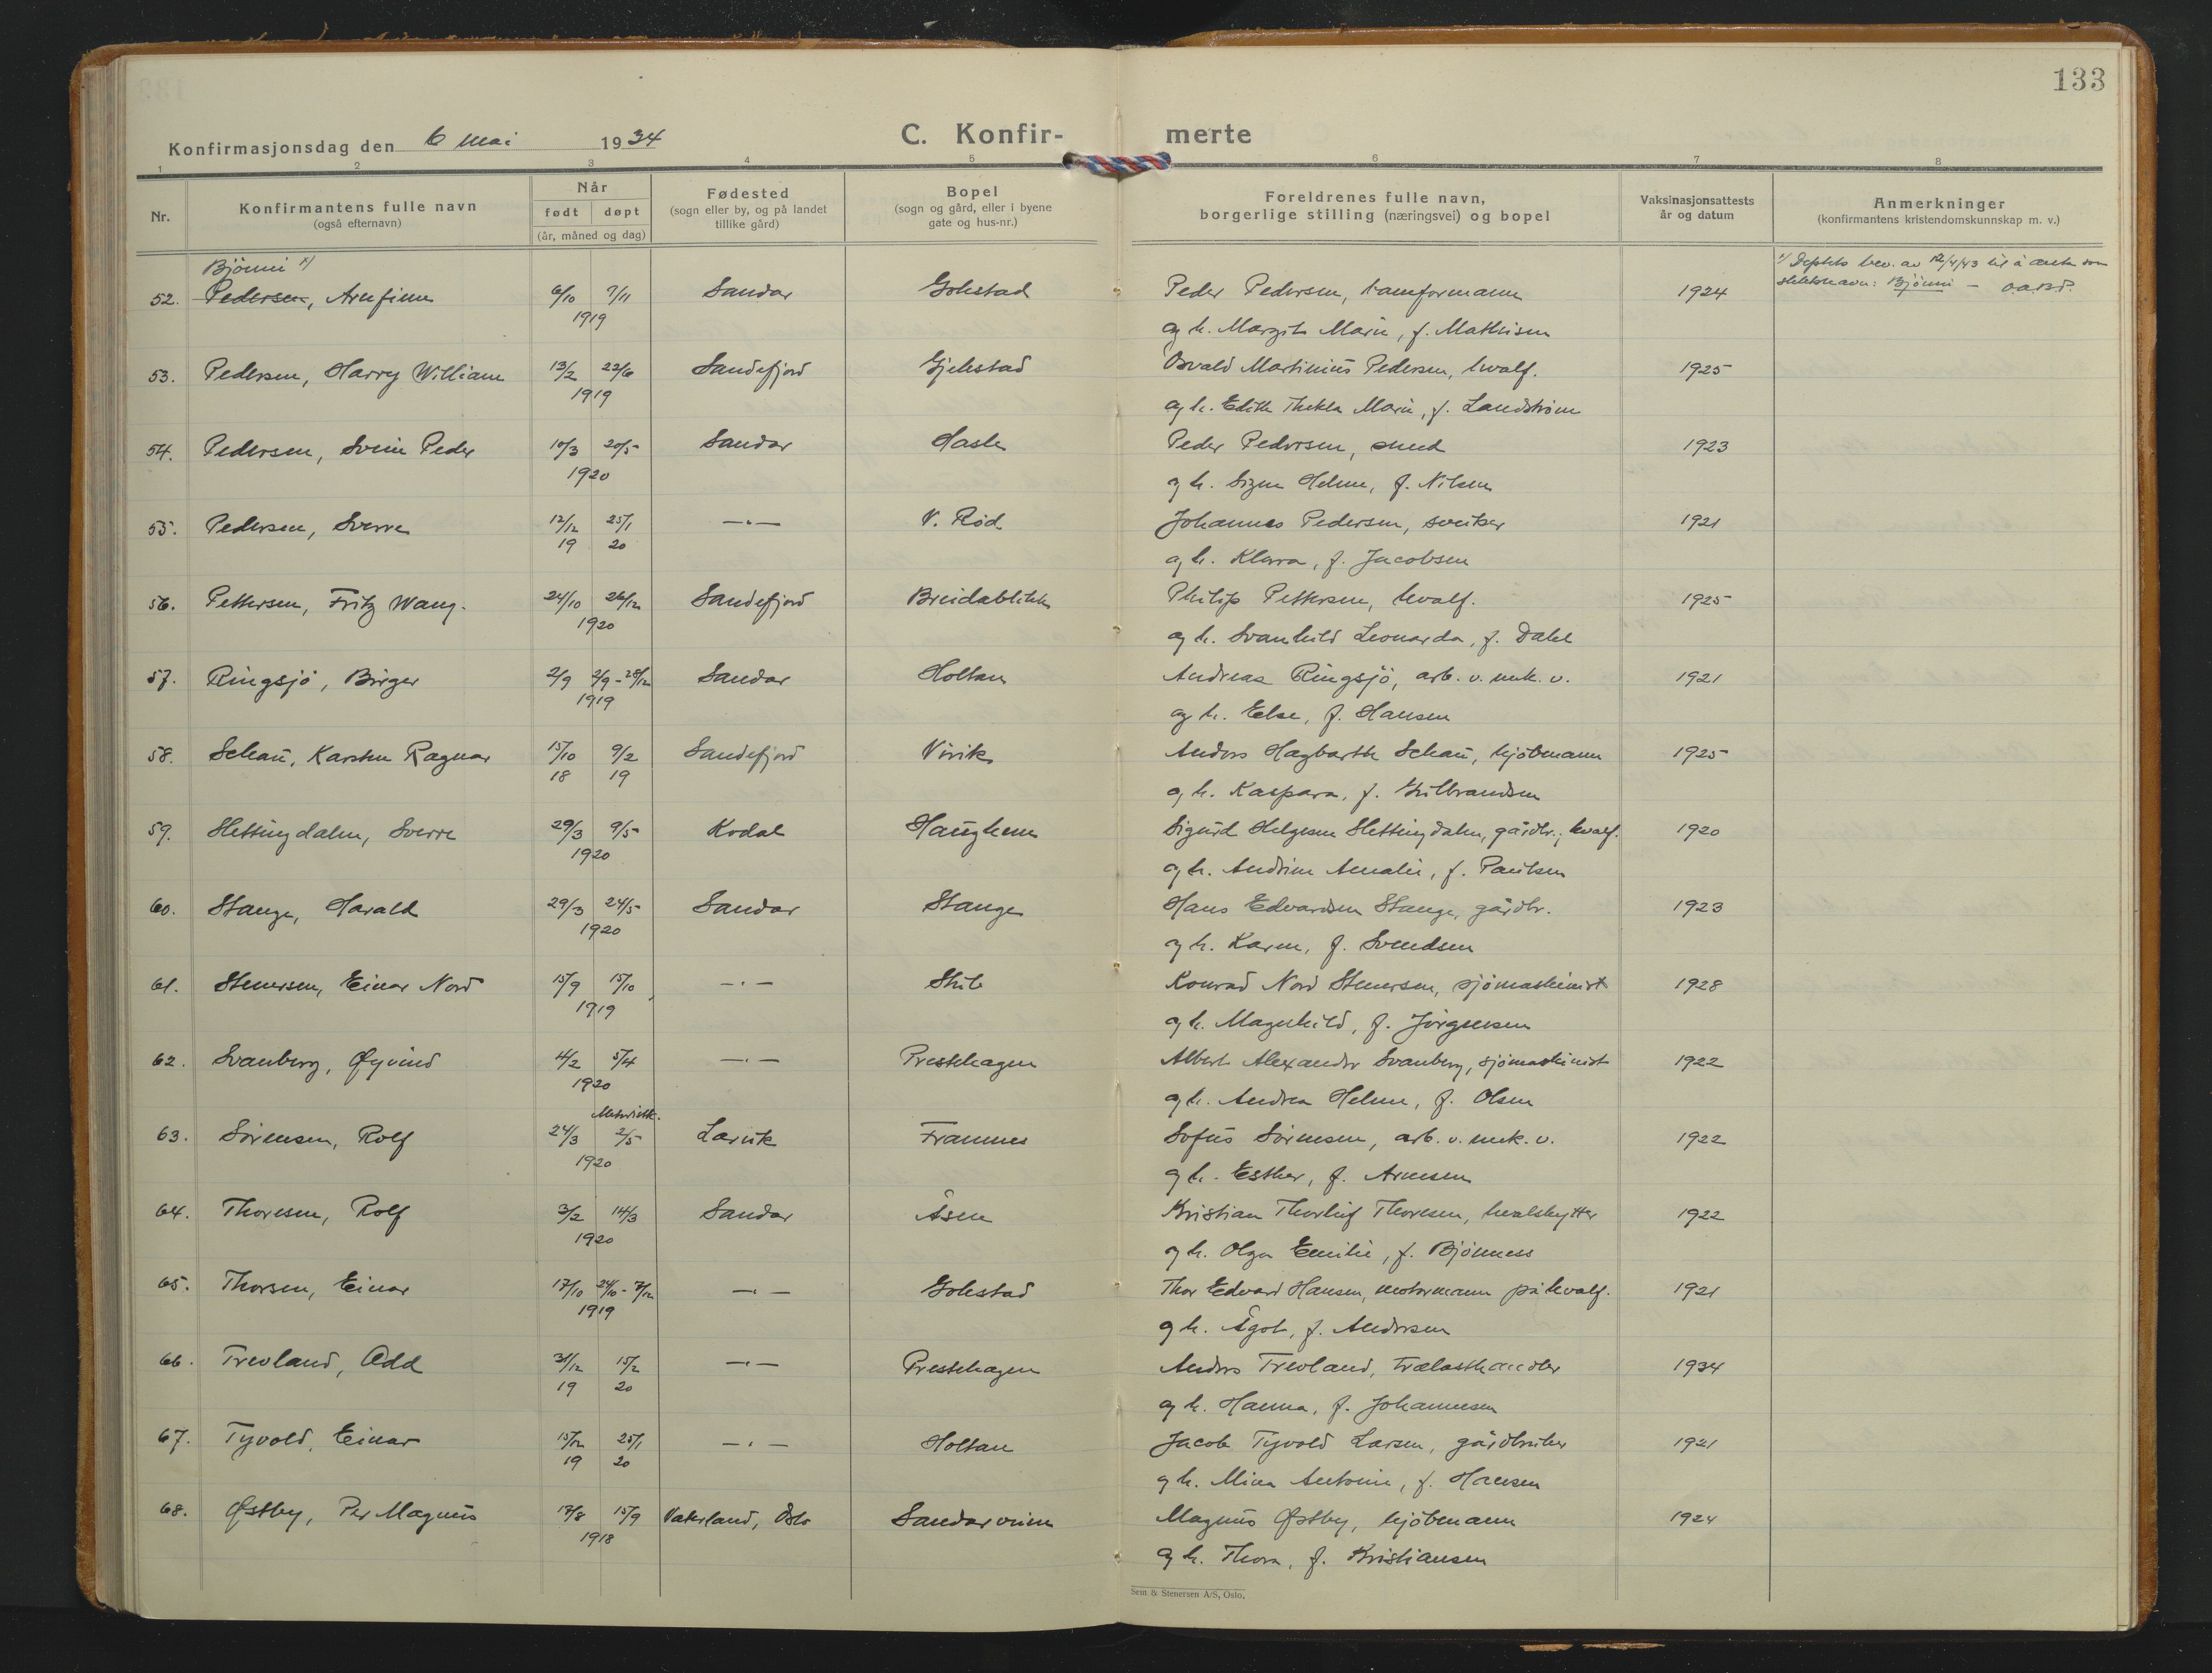 133
Konfirmasjonsdag den 6 mai 1934
C. Konfir- merte
1 2 3 4 5 6 7 8
Nr. Konfirmantens fulle navn (også efternavn) Når født døpt (år, måned og dag) Fødested (sogn eller by, og på landet tillike gård) Bopel (sogn og gård, eller i byene gate og hus-nr.) Foreldrenes fulle navn, borgerlige stilling (næringsvei) og bopel Vaksinasjonsattests år og datum Anmerkninger (konfirmantens kristendomskunnskap m. v.)
Bjönni 1/ 1/ Deptets bev. av 12/4/43 til å anta som
52. Pedersen, Arnfinn 6/10 9/11 Sandar Gokstad Peder Pedersen, 1924 slektsnavn: Bjönni —
1919 og h. Margit Marie, f. Mathisen
53. Pedersen, Harry William 13/2 22/6 Sandefjord Gjekstad Osvald Martinius Pedersen, hvalf. 1925
1919 og h. Edith Thekla Marie, f. Landström
54. Pedersen, Svein Peder 10/3 20/5 Sandar Hasle Peder Pedersen, smed 1923
1920 og h. Signe Helene, f. Nilsen
55. Pedersen, Sverre 12/12 25/1 —·— V. Rød Johannes Pedersen, snekker 1921
19 20 og h. Klara, f. Jacobsen
56. Pettersen, Fritz Wang. 24/10 26/12 Sandefjord Breidablikk Philip Pettersen, hvalf. 1925
1920 og h. Svanhild Leonarda, f. Dahl
57. Ringsjö, Birger 2/9 2/9-28/12 Sandar Holtan Andreas Ringsjö, arb. v. mek. v. 1921
1919 og h. Else, f. Hansen
58. Schau, Karsten Ragnar 15/10 9/2 Sandefjord Virik Anders Hagbarth Schau, kjöbmann 1925
18 19 og h. Kaspara, f. Gulbrandsen
59. Slettingdalen, Sverre 29/3 9/5 Kodal Haughem Sigurd Helgesen Slettingdalen, gårdbr., hvalf. 1920
1920 og h. Andrine Amalie, f. Paulsen
60. Stange, Harald 29/3 24/5 Sandar Stange Hans Edvardsen Stange, gårdbr. 1923
1920 og h. Karen, f. Svendsen
61. Stenersen, Einar Nord 15/9 15/10 —·— Stub Konrad Nord Stenersen, sjömaskinist 1928
1919 og h. Magnhild, f. Jörgensen
62. Svanberg, Øyvind 4/2 5/4 —·— Prestehagen Albert Alexander Svanberg, sjömaskinist 1922
1920 og h. Andrea Helene, f. Olsen
Metodistk.
63. Sörensen, Rolf 24/3 2/5 Larvik Framnes Sofus Sörensen, arb. v. mek. v. 1922
1920 og h. Esther, f. Arnesen
64. Thoresen, Rolf 3/2 14/3 Sandar Åsen Kristian Thorleif Thoresen, hvalskytter 1922
1920 og h. Olga Emilie, f. Bjönness
65. Thorsen, Einar 17/10 24/10-7/12 —·— Gokstad Thor Edvard Hansen, motormann på hvalf. 1921
1919 og h. Ågot, f. Andersen
66. Trevland, Odd 31/12 15/2 —·— Prestehagen Anders Trevland, trælasthandler 1934
19 20 og h. Hanna, f. Johannesen
67. Tyvold, Einar 15/12 25/1 —·— Holtan Jacob Tyvold Larsen, gårdbruker 1921
19 20 og h. Mina Antonie, f. Hansen
68. Østby, Per Magnus 17/8 15/9 Vaterland, Oslo Sandarveien Magnus Østby, kjöbmann 1924
1918 og h. Thora, f. Kristiansen
Sem & Stenersen A/S, Oslo.